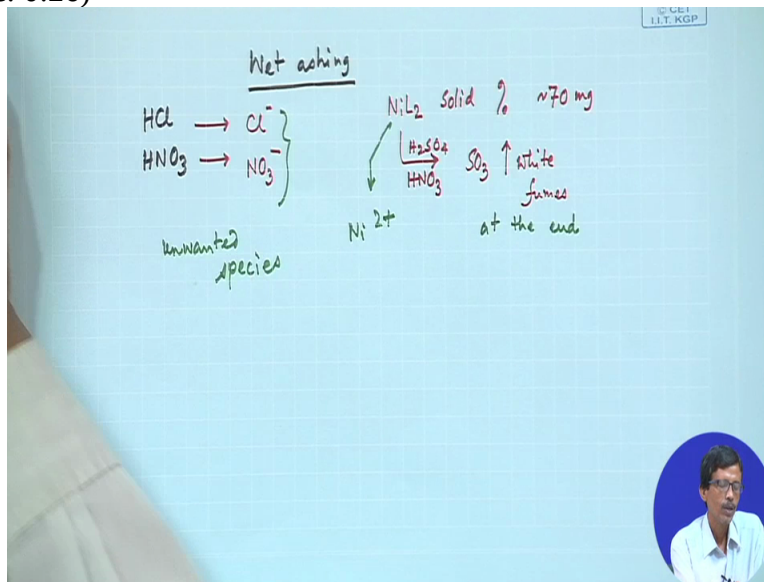 © CET
I.I.T. KGP
Wet ashing
HCl → Cl⁻
HNO₃ → NO₃⁻
unwanted
species
NiL₂ solid % ~70 mg
H₂SO₄
HNO₃
SO₃ ↑ white
fumes
at the end
Ni²⁺